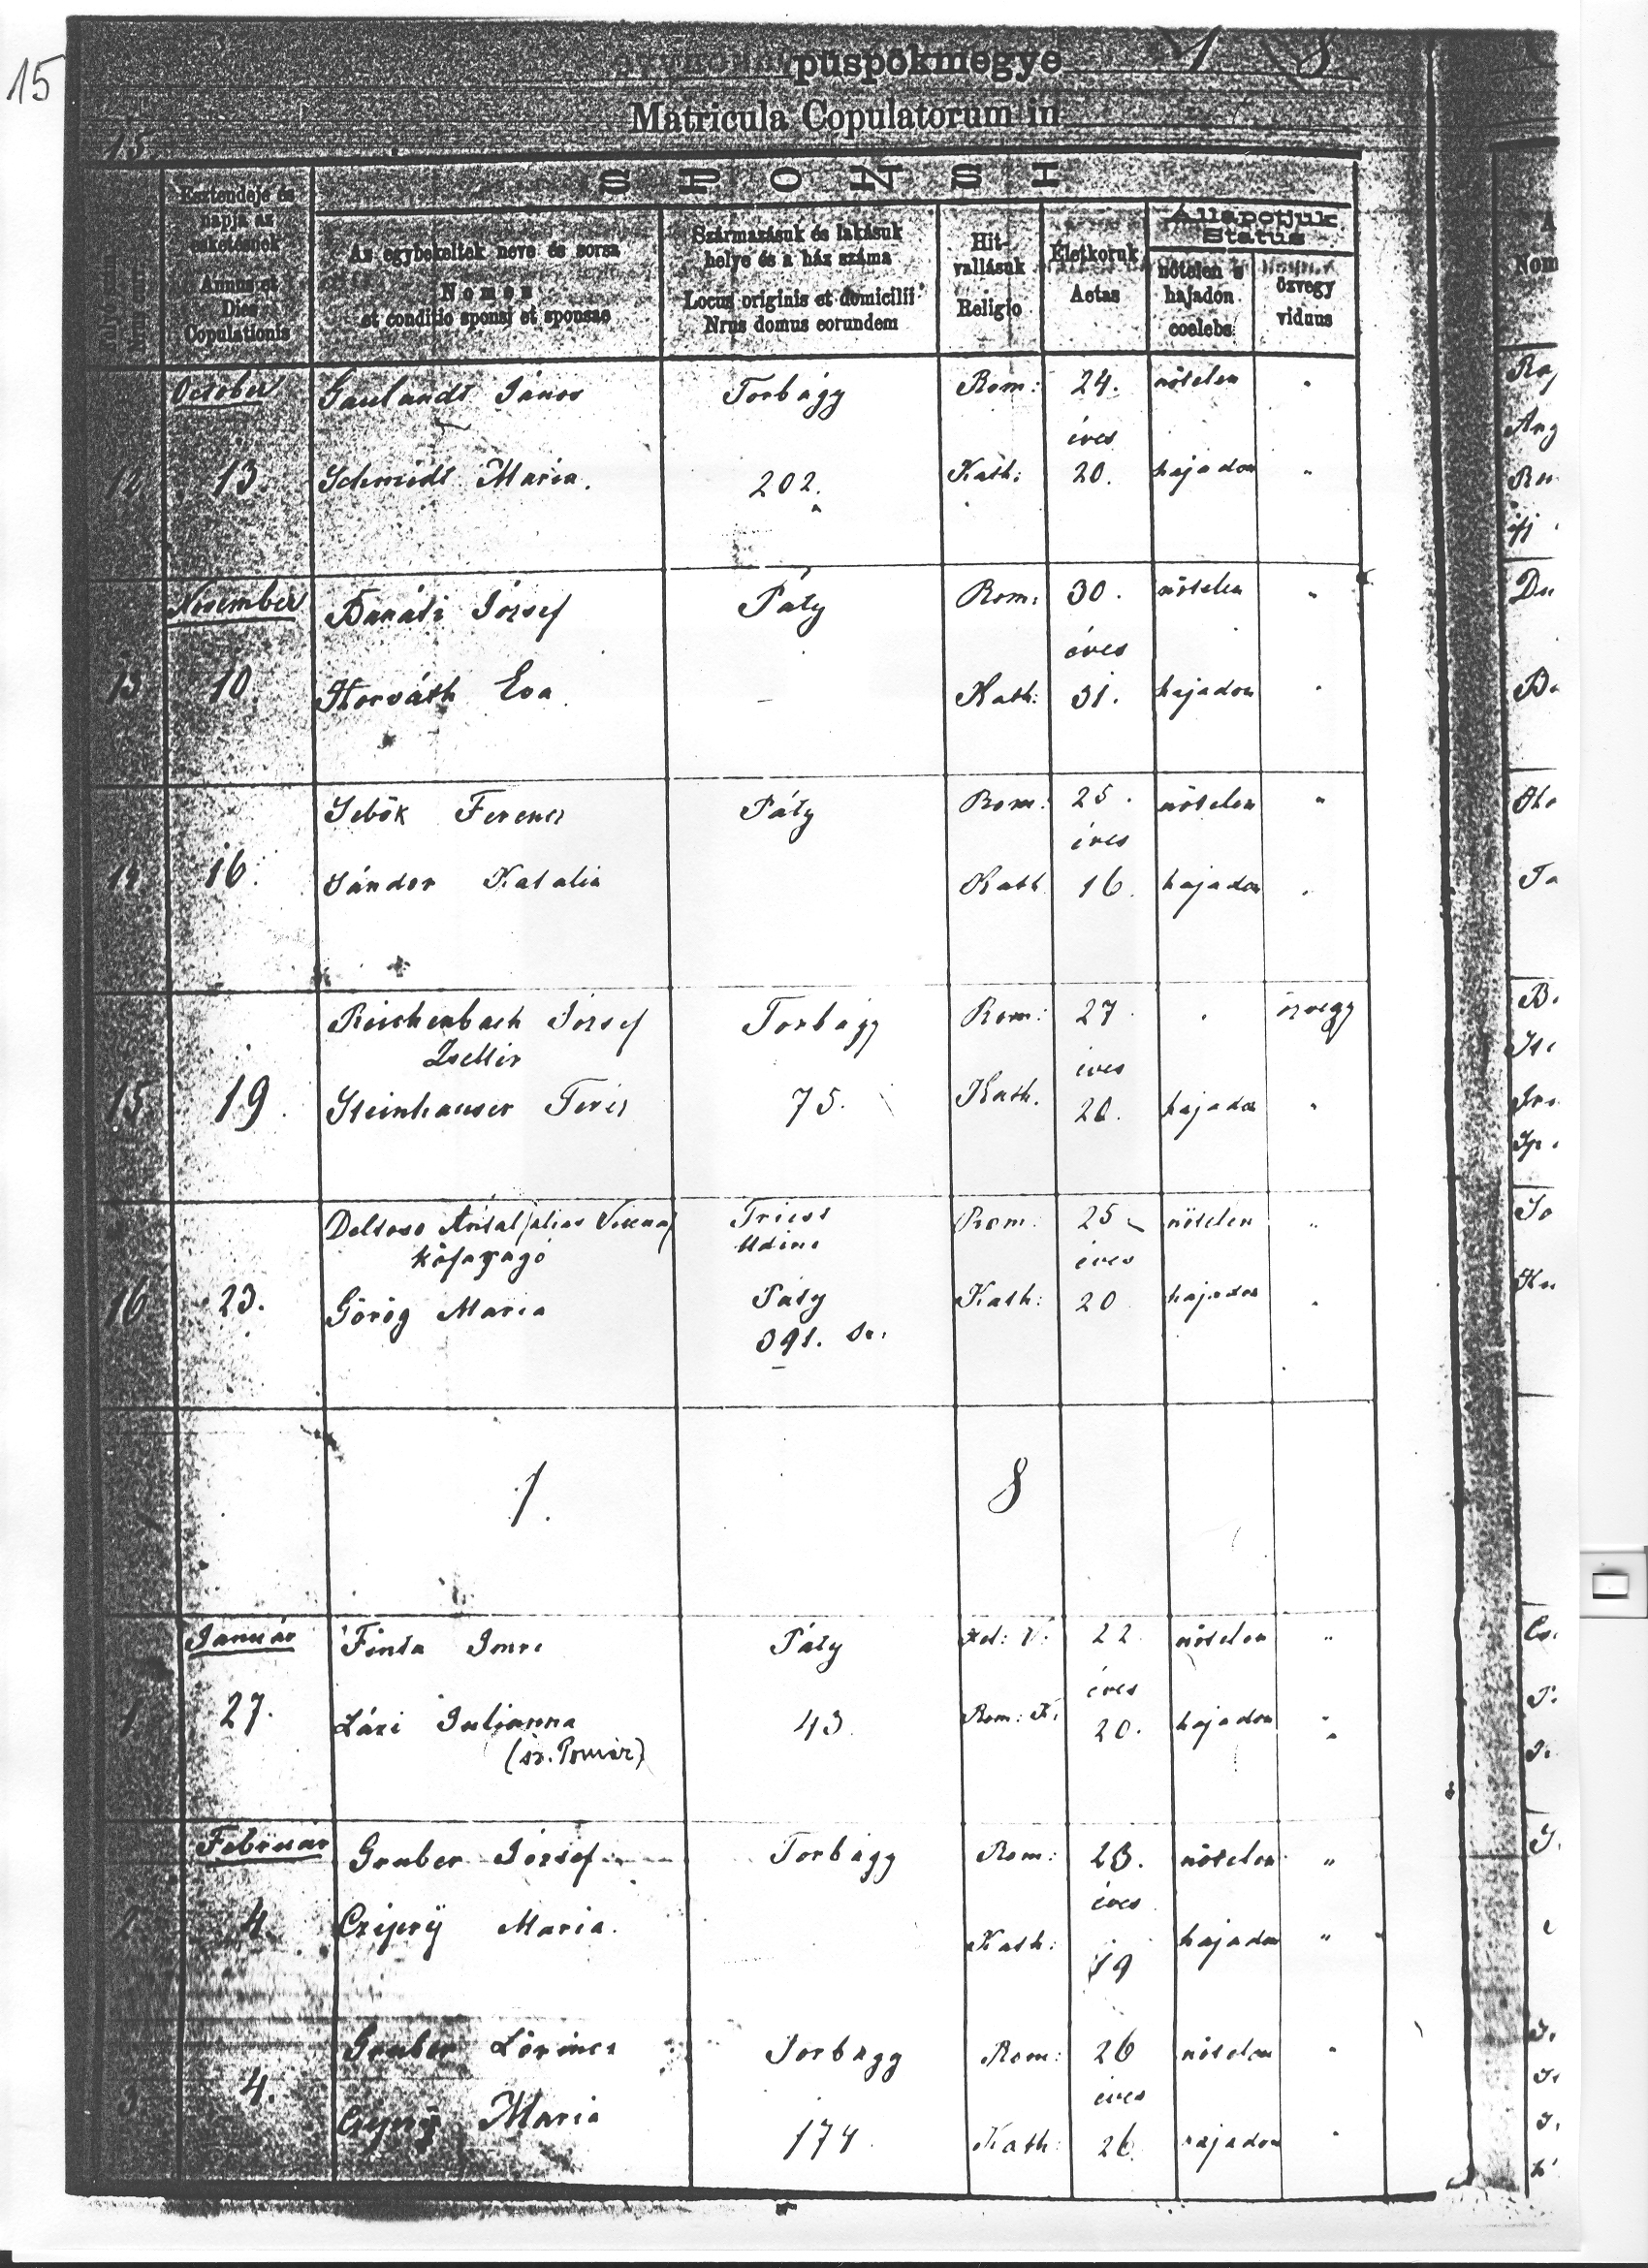 15
püspökmegye
1 8
Matricula Copulatorum in
15.
SPONSI
Esztendeje és
napja az
esketésnek
Annus et
Dies
Copulationis
Az egybekeltek neve és sorsa
Nomen
et conditio sponsi et sponsae
Származásuk és lakásuk
helye és a ház száma
Locus originis et domicilii
Nrus domus eorundem
Hit-
vallásuk
Religio
Életkoruk
Aetas
Állapotjuk
Status
nőtelen s
hajadon
coelebs
özvegy
viduus
October Jánor Torbágy Rom: 24. nőtelen "
éves
12 13. Schmidt Maria. 202. Kath: 20. hajadon "
November József Páty Rom: 30. nőtelen "
éves
13 10. Horváth Éva — Kath: 31. hajadon "
Sebők Ferencz Páty Rom: 25. nőtelen "
éves
14. 16. Sándor Katalin Kath 16. hajadon "
Reichenbach József Torbágy Rom: 27 " özvegy
Zsellér éves
15 19. Steinhauser Teréz 75. Kath. 20. hajadon "
Deltoso Antal /alias Triest Rom: 25 nőtelen "
kőfaragó Udine éves
16 23. Görög Maria Páty Kath: 20 hajadon "
391. Sz.
1. 8
Január Finta Imre Páty V: 22. nőtelen "
éves
1 27. Lázi Julianna 43. Rom: K: 20. hajadon "
Február Gruber József Torbágy Rom: 23. nőtelen "
éves
2. 4. Maria. Kath: 19 hajadon "
Gruber Lőrincz Torbágy Rom: 26 nőtelen "
éves
3. 4. Maria 174. Kath: 26. hajadon "